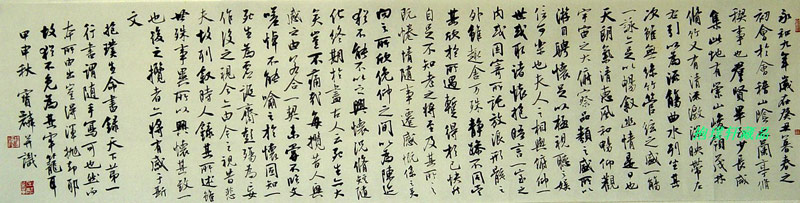 永和九年歲在癸丑暮春之
初會於會稽山陰之蘭亭脩
禊事也群賢畢至少長咸
集此地有崇山峻領茂林
脩竹又有清流激湍映帶左
右引以為流觴曲水列坐其
次雖無絲竹管弦之盛一觴
一詠亦足以暢敘幽情是日也
天朗氣清惠風和暢仰觀
宇宙之大俯察品類之盛所以
遊目騁懷足以極視聽之娛
信可樂也夫人之相與俯仰一
世或取諸懷抱晤言一室之
內或因寄所託放浪形骸之
外雖趣舍萬殊靜躁不同當
其欣於所遇暫得於己快然
自足不知老之將至及其所之
既惓情隨事遷感慨係之矣
向之所欣俛仰之間以為陳迹
猶不能不以之興懷況脩短隨
化終期於盡古人云死生亦大
矣豈不痛哉每攬昔人興
感之由若合一契未嘗不臨文
嗟悼不能喻之於懷固知一
死生為虛誕齊彭殤為妄
作後之視今亦由今之視昔悲
夫故列敘時人錄其所述雖
世殊事異所以興懷其致一
也後之攬者亦將有感於斯
文
抱璞生命書錄天下第一
行書謂隨手寫可也然而
本所由出豈得渾拋卻耶
故猶不免為其牢籠耳
甲申秋 寶麟并識